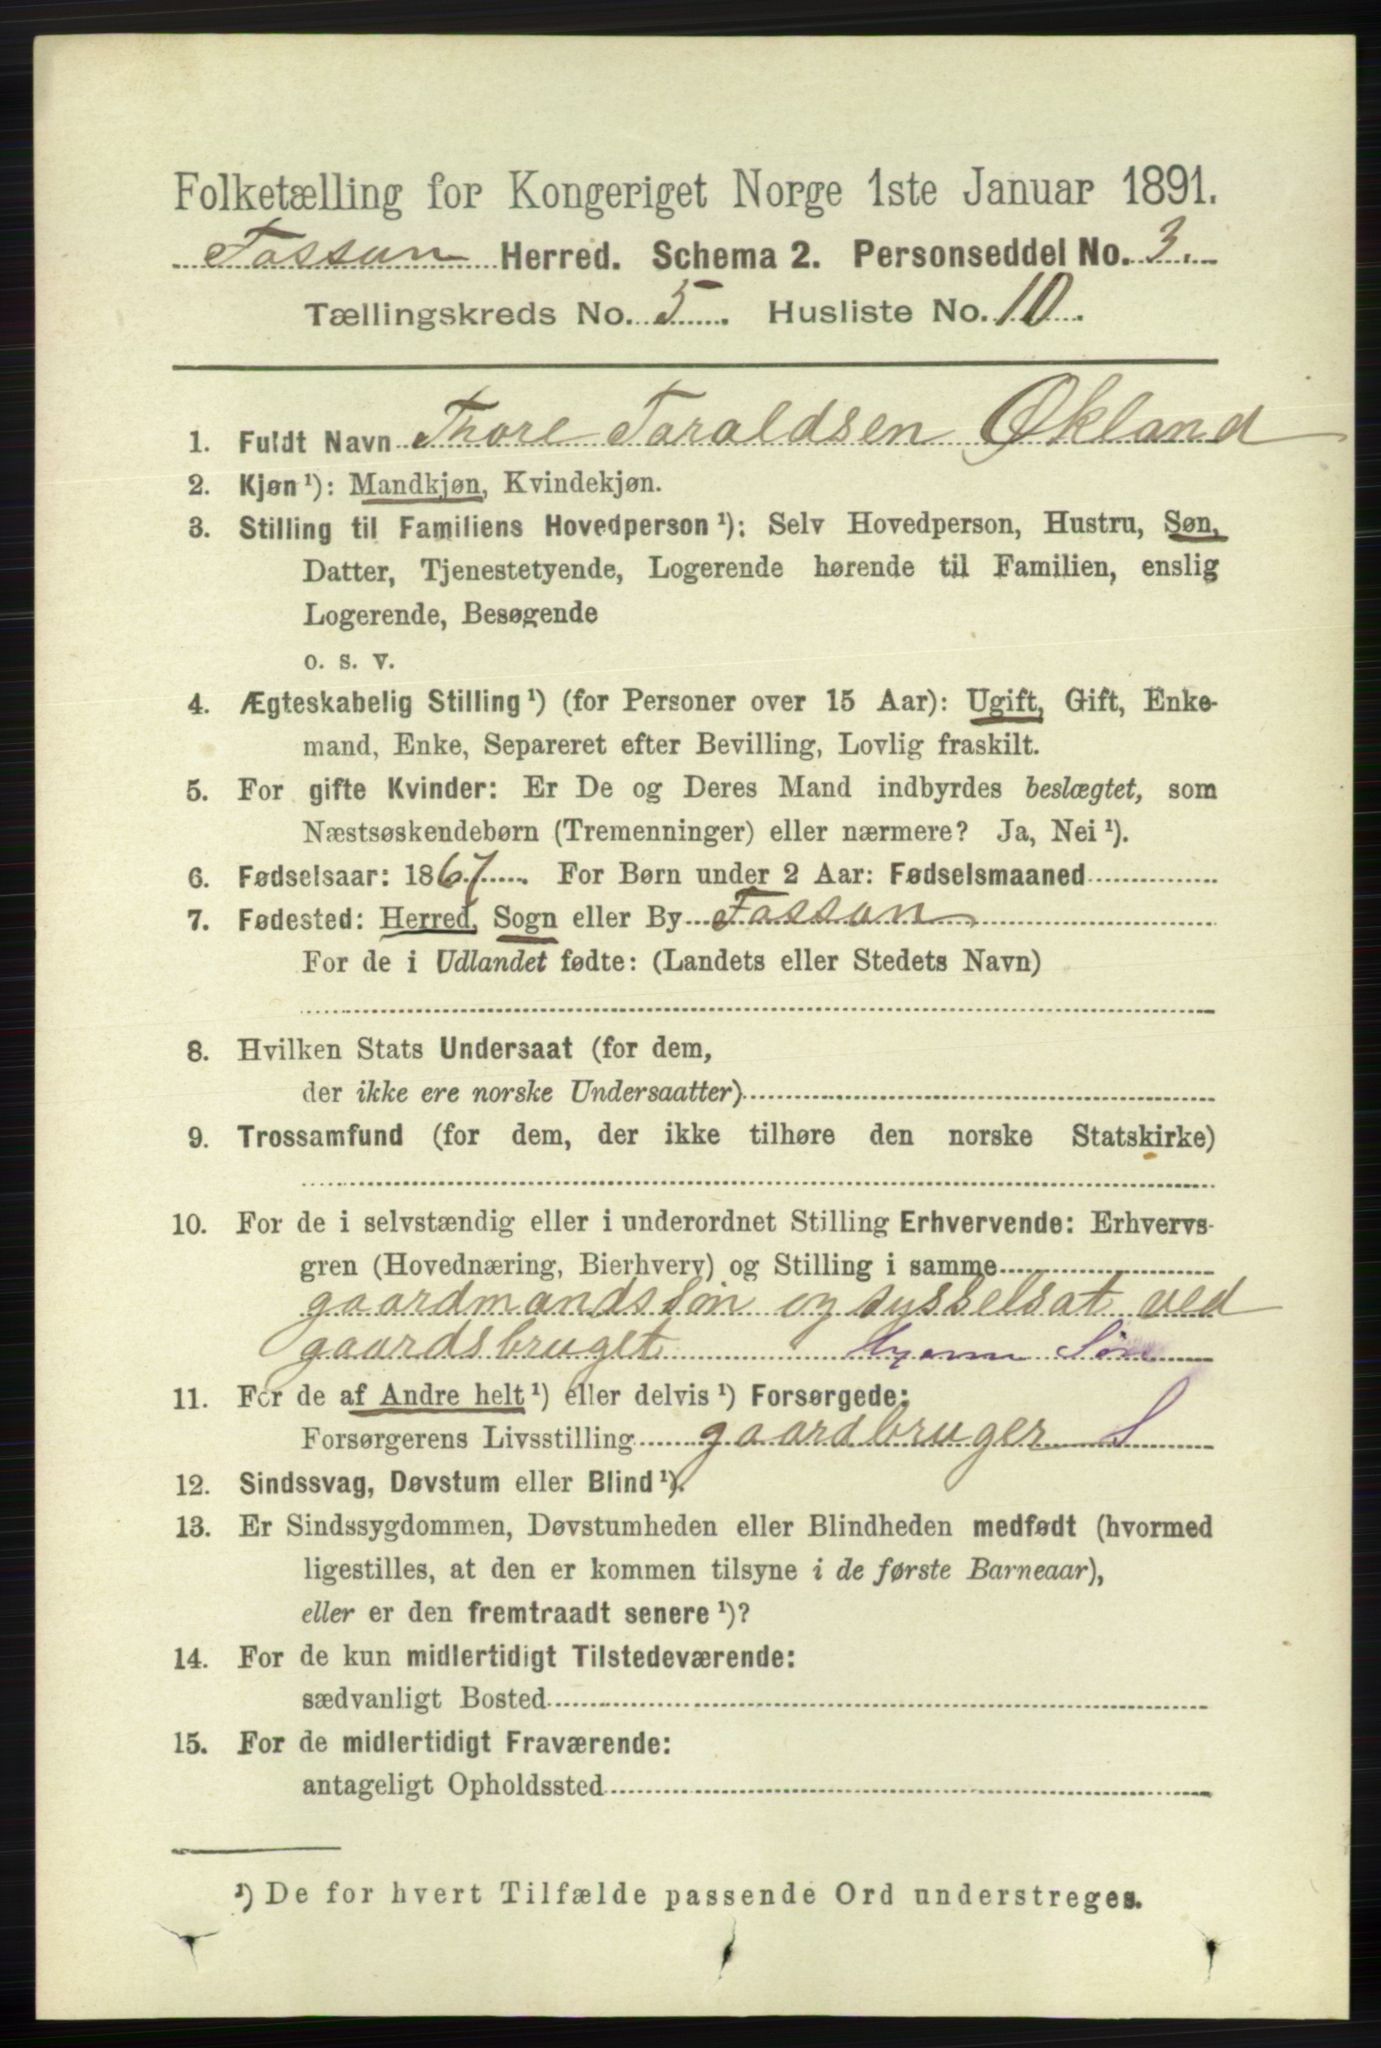 Folketælling for Kongeriget Norge 1ste Januar 1891.
Fossan Herred. Schema 2. Personseddel No. 3.
Tællingskreds No. 5. Husliste No. 10.
1. Fuldt Navn Thore Taraldsen Økland
2. Kjøn ¹): Mandkjøn, Kvindekjøn.
3. Stilling til Familiens Hovedperson ¹): Selv Hovedperson, Hustru, Søn,
Datter, Tjenestetyende, Logerende hørende til Familien, enslig
Logerende, Besøgende
o. s. v.
4. Ægteskabelig Stilling ¹) (for Personer over 15 Aar): Ugift, Gift, Enke-
mand, Enke, Separeret efter Bevilling, Lovlig fraskilt.
5. For gifte Kvinder: Er De og Deres Mand indbyrdes beslægtet, som
Næstsøskendebørn (Tremenninger) eller nærmere? Ja, Nei ¹).
6. Fødselsaar: 1867. For Børn under 2 Aar: Fødselsmaaned
7. Fødested: Herred, Sogn eller By Fossan
For de i Udlandet fødte: (Landets eller Stedets Navn)
8. Hvilken Stats Undersaat (for dem,
der ikke ere norske Undersaatter)
9. Trossamfund (for dem, der ikke tilhøre den norske Statskirke)
10. For de i selvstændig eller i underordnet Stilling Erhvervende: Erhvervs-
gren (Hovednæring, Bierhverv) og Stilling i samme
gaardmandssøn og sysselsat ved
gaardsbruget hjemme Søn
11. For de af Andre helt ¹) eller delvis ¹) Forsørgede:
Forsørgerens Livsstilling gaardbruger S
12. Sindssvag, Døvstum eller Blind ¹).
13. Er Sindssygdommen, Døvstumheden eller Blindheden medfødt (hvormed
ligestilles, at den er kommen tilsyne i de første Barneaar),
eller er den fremtraadt senere ¹)?
14. For de kun midlertidigt Tilstedeværende:
sædvanligt Bosted
15. For de midlertidigt Fraværende:
antageligt Opholdssted
¹) De for hvert Tilfælde passende Ord understreges.